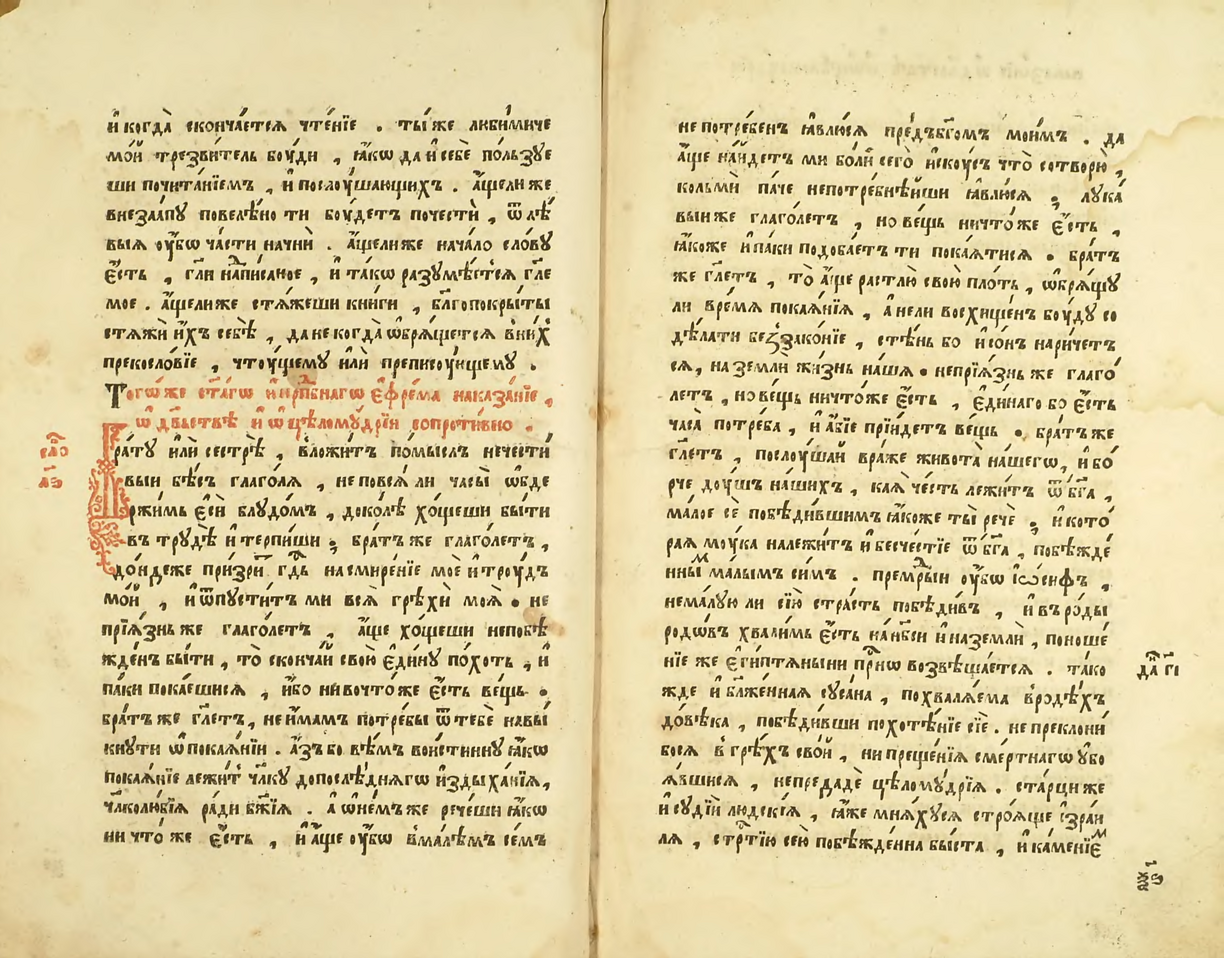 и҆ когда̀ скончáетсѧ чтéнїе . ты́ же люби́миче
мо́й трезви́тель бꙋ́ди , ꙗ҆́кѡ да и҆ себѐ по́льзꙋе
ши почита́нїемъ , и҆ послꙋ́шающихъ . а҆́щели же
внеза́пꙋ повелѣ́но ти бꙋ́детъ почестѝ , ѿ лѣ́
выѧ ᲂу҆́бѡ ча́сти начнѝ . а҆́щелиже нача́ло сло́вꙋ
є҆́сть , гл҃и напи́саное , и҆ та́кѡ разꙋмѣ́етсѧ гл҃е
мое . а҆́щелиже стѧ́жеши кни́ги , бл҃гопокры́ты
стѧжѝ и҆̀хъ себѣ̀ , да не когда̀ ѡ҆брѧ́щетсѧ в ни́хъ
прекосло́вїе , чтꙋ́щемꙋ и҆лѝ преписꙋ́ющемꙋ .
Тогѡ́же ст҃а́гѡ и҆ прпⷣбнагѡ є҆фре́ма наказа́нїе ,
ѡ҆ дв҃ьствѣ и҆ ѡ҆ цѣломꙋ́дрїи сопроти́вно .
сло́
л҃з
Бра́тꙋ и҆лѝ сестрѣ̀ , вложи́тъ по́мыслъ нечести́
выи бѣ́съ глаго́лѧ , не повсѧ́ ли часы̀ ѡ҆бде
ржи́мь є҆сѝ блꙋ́домъ , доко́лѣ хо́щеши бы́ти
въ трꙋдѣ̀ и҆ терпи́ши ; бра́тъ же глаго́летъ ,
до́ндеже при́зри гдⷭ҇ь на смире́нїе моѐ и҆ трꙋ́дъ
мо́й , и҆ ѿпꙋсти́тъ ми всѧ̀ грѣхѝ моѧ̀ . не
прїѧ́знь же глаго́летъ , а҆́ще хо́щеши непобѣ
жде́нъ бы́ти , то̀ сконча́й свою̀ є҆ди́нꙋ по́хоть , и҆
па́ки пока́ешисѧ , и҆́бо ни во что́же є҆́сть ве́щь .
бра́тъ же гл҃етъ , не и҆́мамъ потре́бы ѿ тебѐ навы́
кнꙋти ѡ҆ покаѧ́нїи . а҆́зъ бо вѣ́мъ вои́стиннꙋ ꙗ҆́кѡ
покаѧ́нїе лежи́тъ чл҃кꙋ до послѣ́днѧгѡ и҆здыха́нїѧ ,
чл҃колю́бїѧ ра́ди бж҃їѧ . а҆ ѡ҆ не́мъже рече́ши ꙗ҆́кѡ
ни что́ же є҆́сть , и҆ а҆́ще ᲂу҆́бѡ в ма́лѣмъ се́мъ
не потре́бенъ ꙗ҆влю́сѧ пре́дъ бг҃омъ мои́мъ . да
а҆́ще на́йдетъ ми бо́лїи сегѡ̀ и҆скꙋ́съ что̀ сотворю̀ ,
кольмѝ па́че непотре́бнѣйши ꙗ҆влю́сѧ ; лꙋка́
выи же глаго́летъ , но ве́щь ничто́же є҆́сть ,
ꙗ҆́коже и҆ па́ки подоба́етъ ти пока́ѧтисѧ . бра́тъ
же гл҃етъ , то̀ а҆́ще растлю̀ свою̀ пло́ть , ѡ҆брѧ́щꙋ
ли вре́мѧ покаѧ́нїѧ , а҆ не́ли восхище́нъ бꙋ́дꙋ со
дѣ́лати беззако́нїе , стѣ́нь бо и҆ со́нъ нарича́етъ
сѧ , на землѝ жи́знь на́ша . непрїѧ́знь же глаго́
летъ , но ве́щь ничто́же є҆́сть , є҆ди́наго бо є҆́сть
часа̀ потре́ба , и҆ а҆́бїе прїи́детъ ве́щь . бра́тъ же
гл҃етъ , послꙋ́шай вра́же живота̀ на́шегѡ , и҆ бо́
рче дꙋ́шъ на́шихъ , ка́ѧ че́сть лежи́тъ ѿ бг҃а ,
ма́лое сѐ побѣди́вшимъ ꙗ҆́коже ты̀ речѐ ; и҆ кото́
раѧ мꙋ́ка належи́тъ и҆ бесче́стїе ѿ бг҃а , побѣжде́
нны́мъ ма́лымъ си́мъ . премⷣрыи ᲂу҆́бѡ і҆ѡ́сифъ ,
нема́лꙋю ли сїю̀ стра́сть побѣди́въ , и҆ въ ро́ды
родѡ́въ хвали́мь є҆́сть на нб҃си и҆ на землѝ , поноше́
нїе же є҆ги́птѧныни при́снѡ возвѣща́етсѧ . тако
жде и҆ бл҃же́ннаѧ сꙋса́на , похвалѧ́ема в ро́дѣхъ
до вѣ́ка , побѣди́вши похотѣ́нїе сїѐ . не преклони́
босѧ в грѣ́хъ сво́й , ни преще́нїѧ сме́ртнагѡ ᲂубо
ѧ́вшисѧ , непредадѐ цѣломꙋ́дрїѧ . ста́рци же
и҆ сꙋдїи̑ людскі́ѧ , ꙗ҆̀же мнѧ́хꙋсѧ строѧ́ще і҆зра́и
лѧ , стрⷭ҇тїю сею̀ побѣжде́нна бы́ста , и҆ ка́менїемъ
да҃ гі